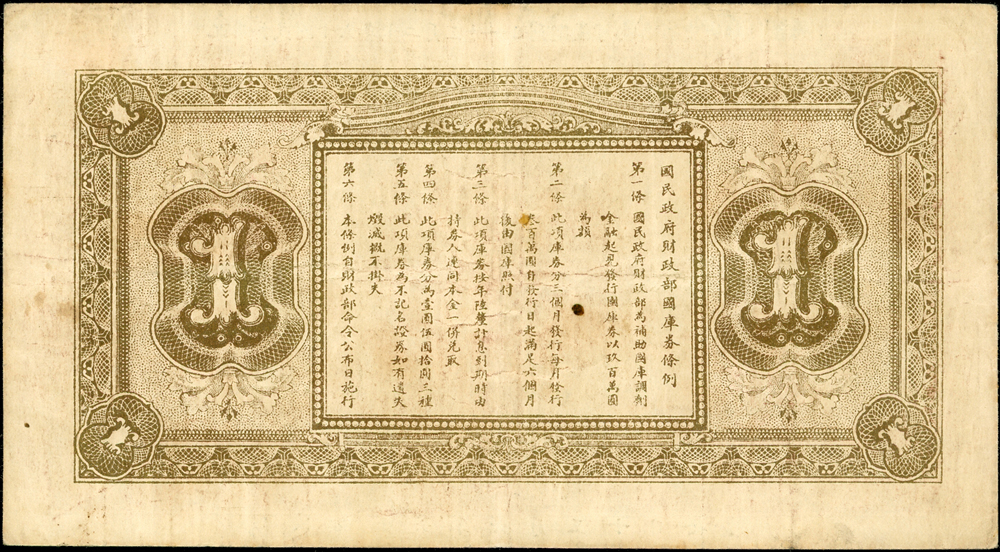 國民政府財政部國庫券條例
第一條 國民政府財政部為補助國庫調劑
金融起見發行國庫券以玖百萬圓
為額
第二條 此項庫券分三個月發行每月發行
叁百萬圓自發行日起滿足六個月
後由國庫照付
第三條 此項庫券按年陸釐計息到期時由
持券人連同本金一併兌取
第四條 此項庫券分為壹圓伍圓拾圓三種
第五條 此項庫券為不記名證券如有遺失
毀滅概不掛失
第六條 本條例自財政部命令公布日施行
1
1